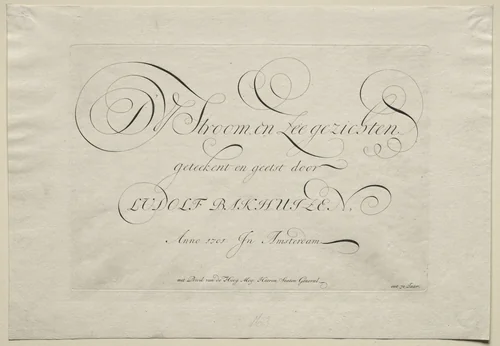 D'Y Stroom, en Zee gezichten
geteekent en geëtst door
LUDOLF BAKHUIZEN.
Anno 1701 In Amsterdam
met Privil. van de Hoog Mog. Heeren Staaten Generael.